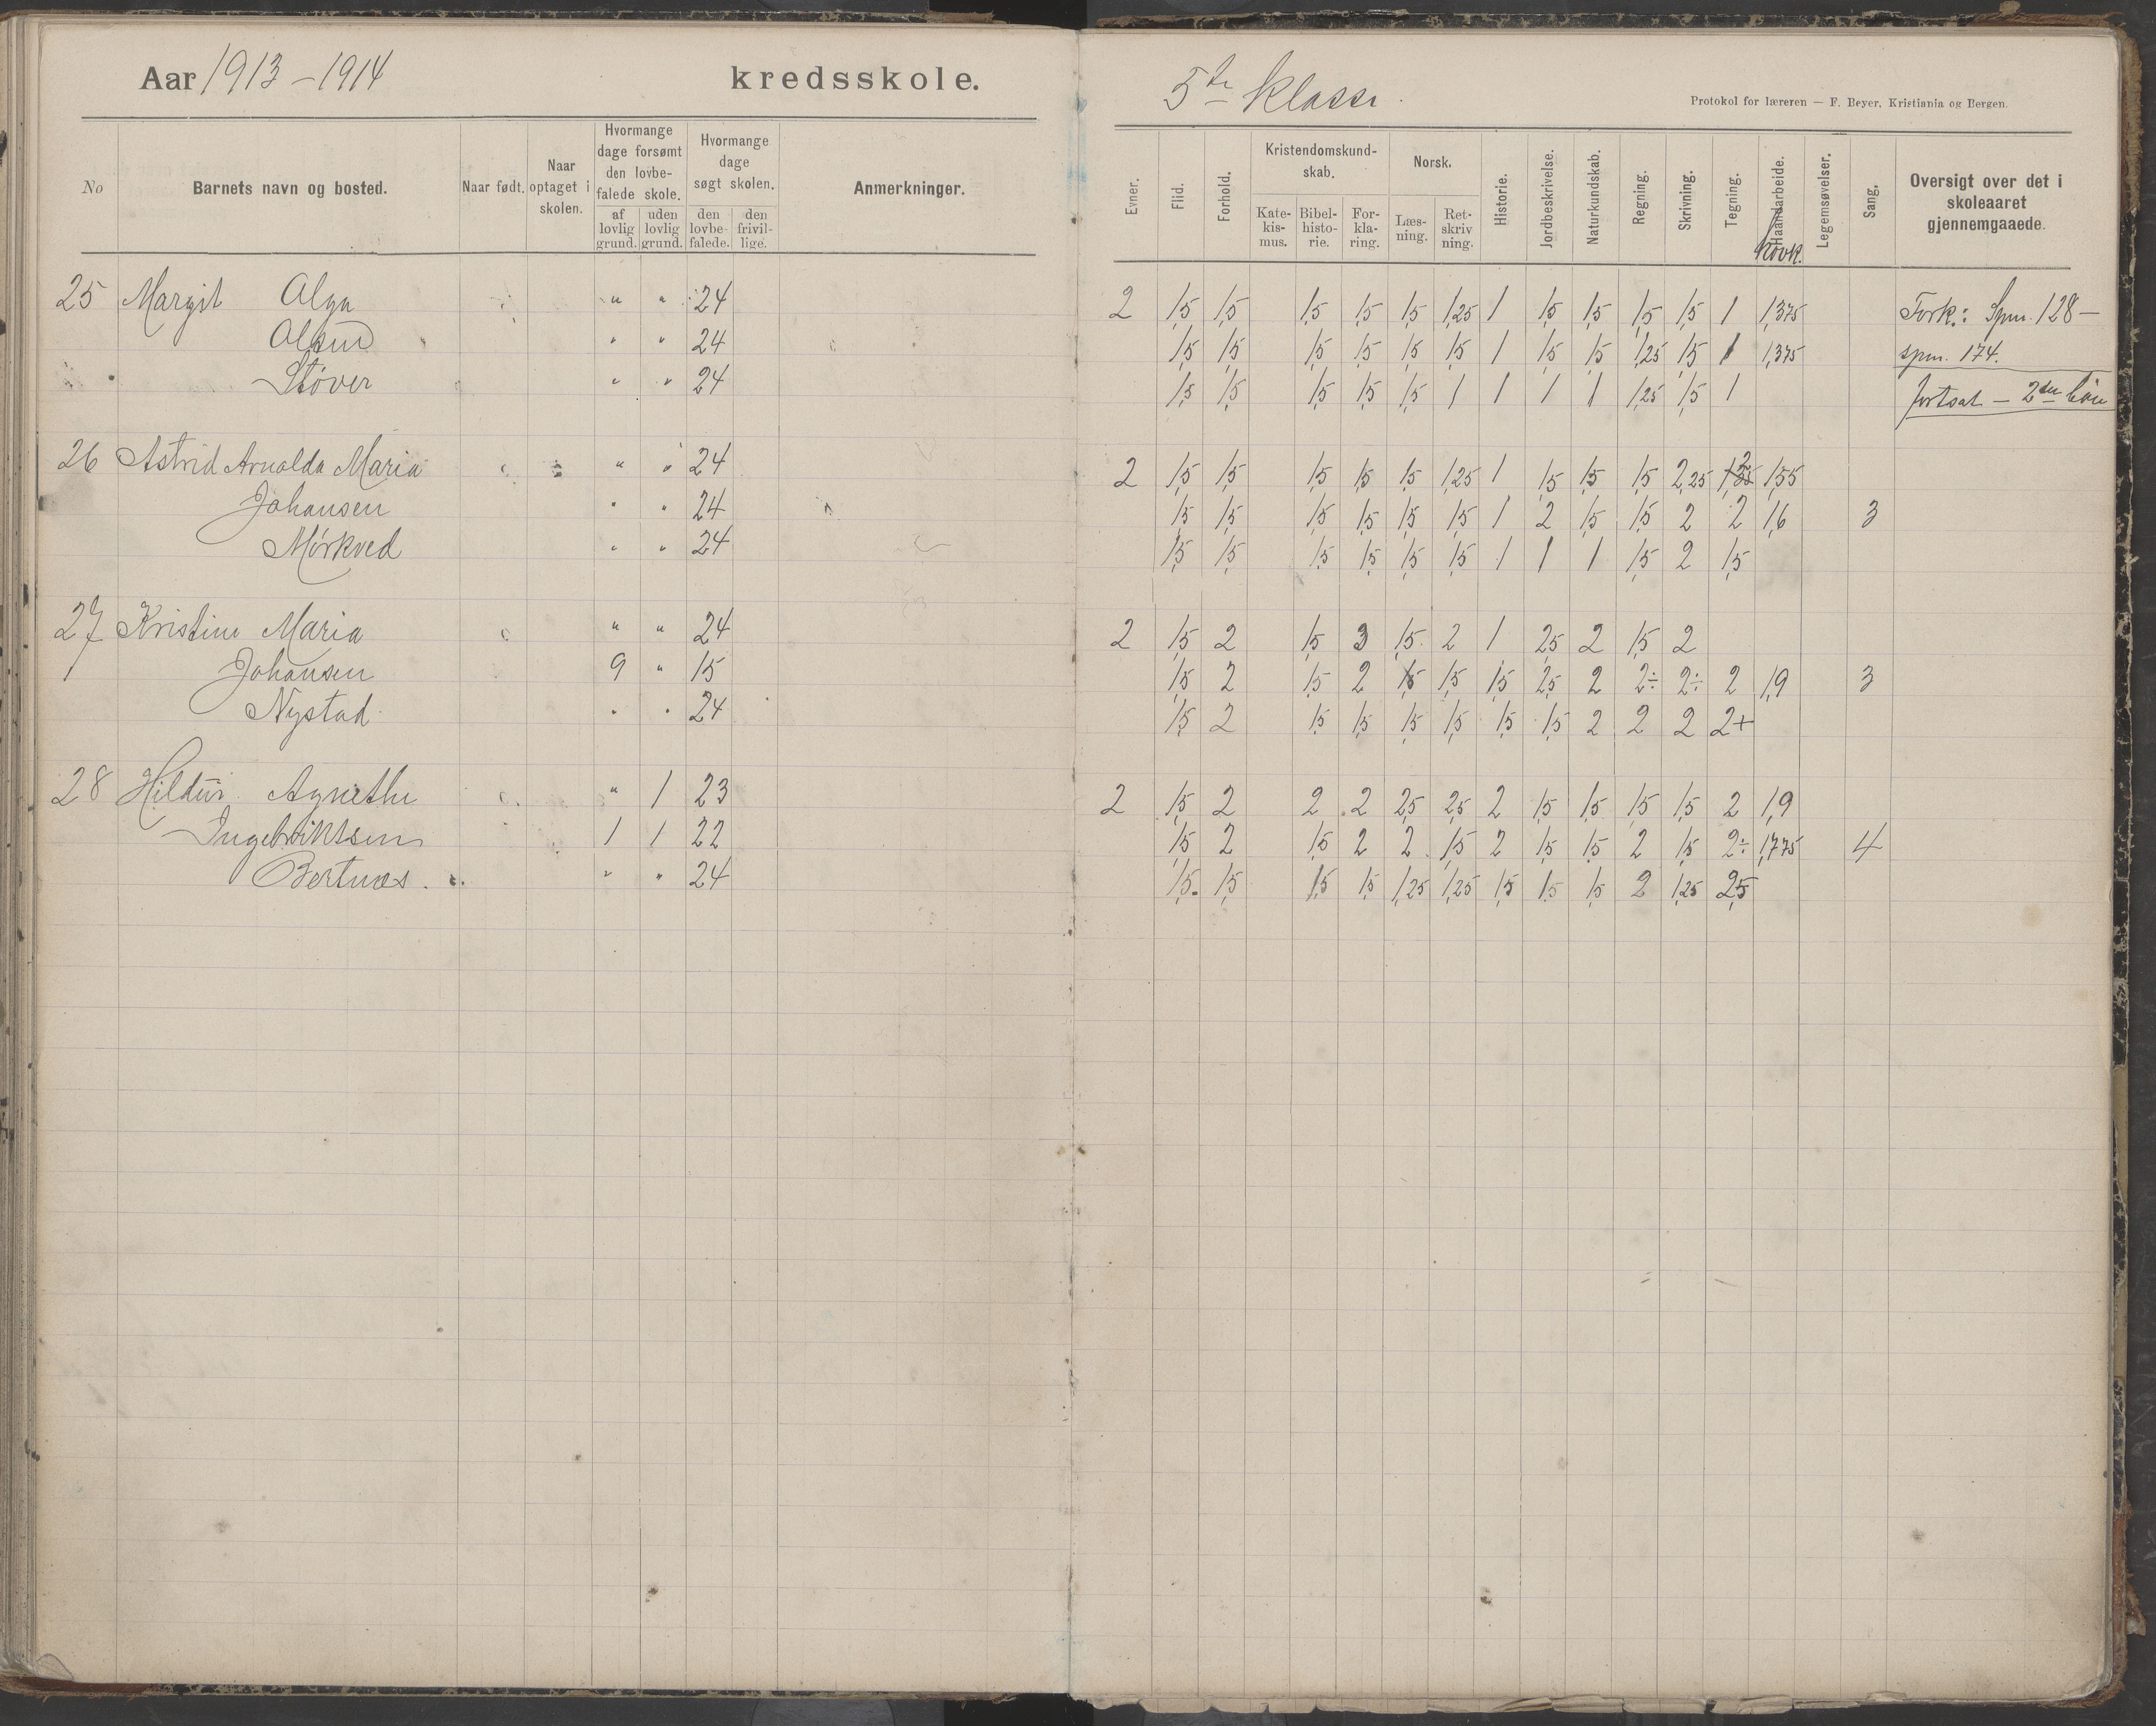 Aar 1913-1914 kredsskole.
No
Barnets navn og bosted.
Naar født.
Naar optaget i skolen.
Hvormange dage forsømt den lovbefalede skole.
af lovlig grund.
uden lovlig grund.
Hvormange dage søgt skolen.
den lovbefalede.
den frivillige.
Anmerkninger.
25 Margit " " 24
" " 24
Støver " " 24
26 Astrid Arnolda Maria " " 24
Johansen " " 24
Mørkved " " 24
27 Kristine Maria " " 24
Johansen 9 " 15
Nystad " " 24
28 Hildur Agnethe " 1 23
Ingebriktsen 1 1 22
Bertnes " " 24
5te klasse.
Protokol for læreren — F. Beyer, Kristiania og Bergen.
Evner.
Flid.
Forhold.
Kristendomskundskab.
Katekismus.
Bibelhistorie.
Forklaring.
Norsk.
Læsning.
Retskrivning.
Historie.
Jordbeskrivelse.
Naturkundskab.
Regning.
Skrivning.
Tegning.
Haandarbeide.
Hovk.
Legemsøvelser.
Sang.
Oversigt over det i skoleaaret gjennemgaaede.
2 1,5 1,5 1,5 1,5 1,5 1,25 1 1,5 1,5 1,5 1,5 1 1,375 Fork.: Spm. 128 —
1,5 1,5 1,5 1,5 1,5 1,5 1 1,5 1,5 1,25 1,5 1 1,375 spm. 174.
1,5 1,5 1,5 1,5 1,5 1 1 1 1 1,25 1,5 1 fortsat — 2den
2 1,5 1,5 1,5 1,5 1,5 1,25 1 1,5 1,5 1,5 2,25 2 1,55
1,5 1,5 1,5 1,5 1,5 1,5 1 2 1,5 1,5 2 2 1,6 3
1,5 1,5 1,5 1,5 1,5 1,5 1 1 1 1,5 2 1,5
2 1,5 2 1,5 3 1,5 2 1 2,5 2 1,5 2
1,5 2 1,5 2 1,5 1,5 1,5 2,5 2 2÷ 2÷ 2 1,9 3
1,5 2 1,5 1,5 1,5 1,5 1,5 1,5 2 2 2 2+
2 1,5 2 2 2 2,5 2,5 2 1,5 1,5 1,5 1,5 2 1,9
1,5 2 1,5 2 2 1,5 2 1,5 1,5 2 1,5 2÷ 1,775 4
1,5 1,5 1,5 1,5 1,25 1,25 1,5 1,5 1,5 2 1,25 2,5